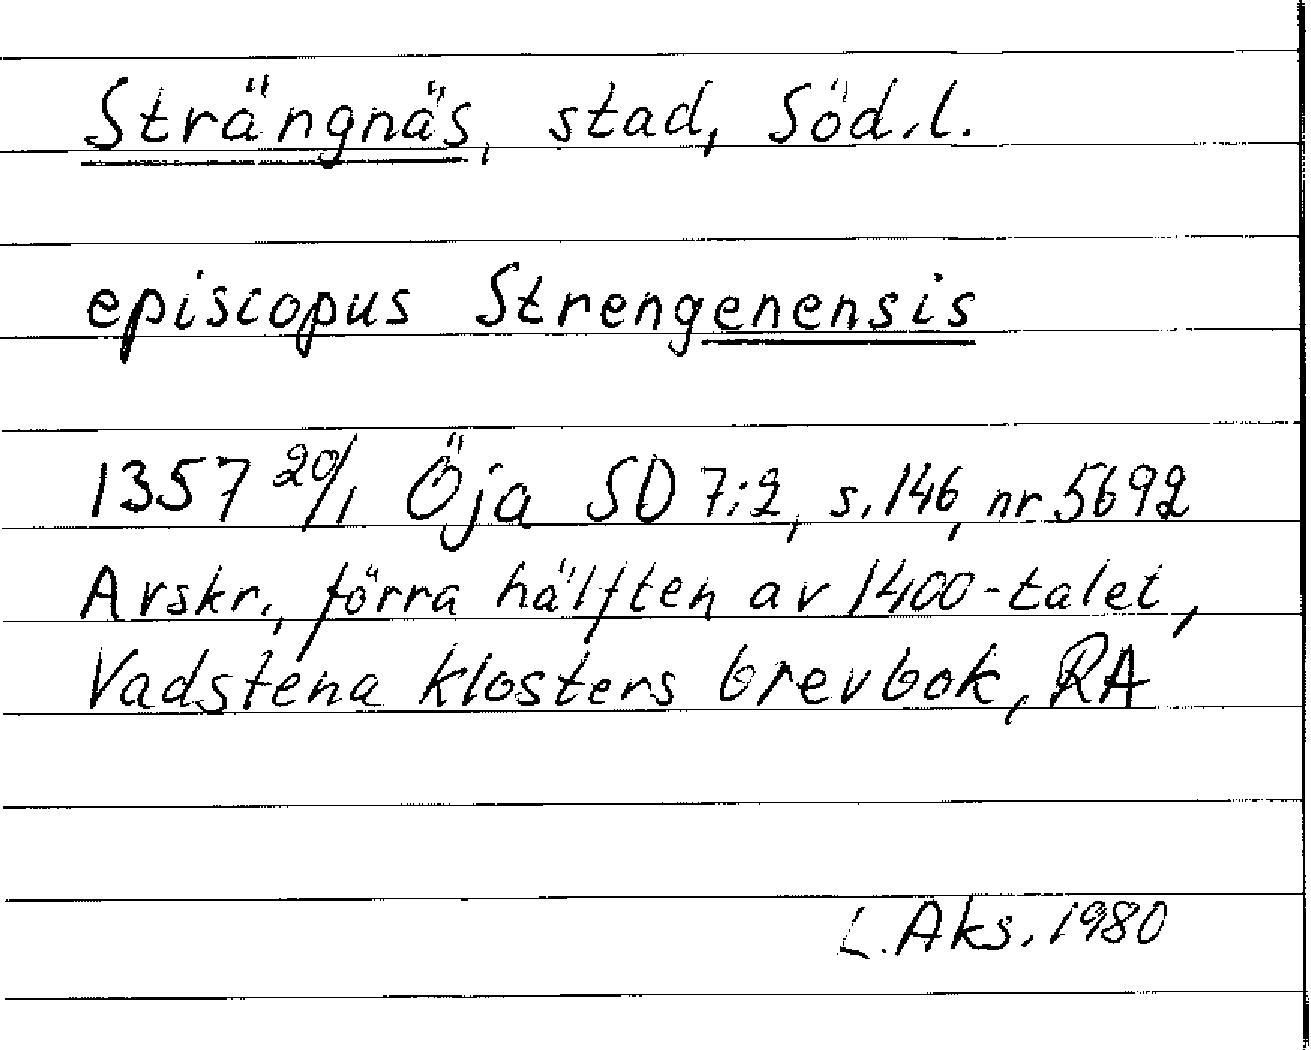 Strängnäs, stad, Söd.l.
episcopus Strengenensis
1357 20/1 Öja SD 7:2, s.146, nr 5692
Avskr., förra hälften av 1400-talet,
Vadstena klosters brevbok, RA
L. Aks. 1980